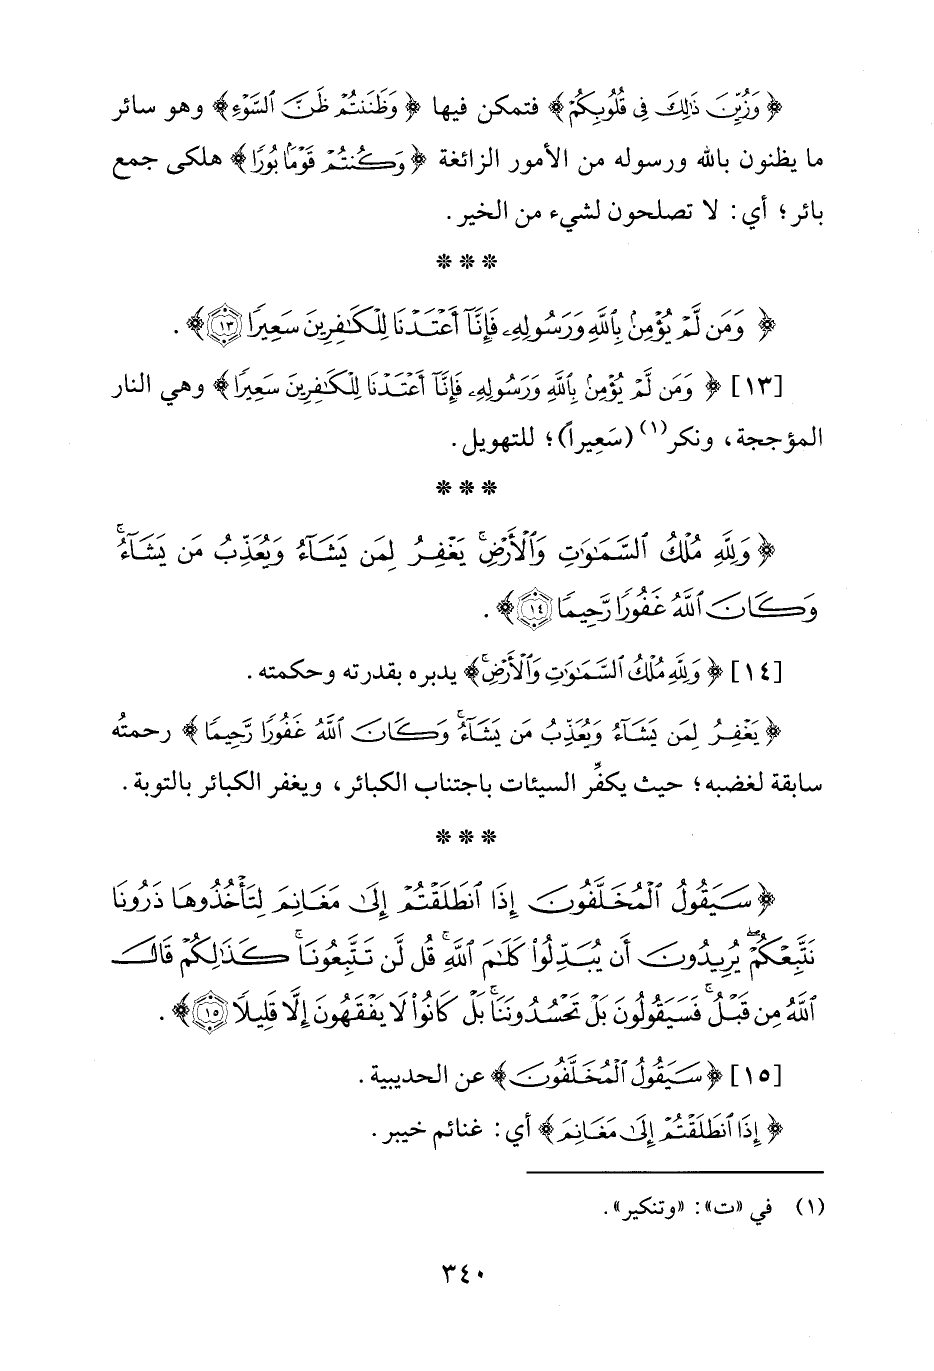 ﴿ وَزُيِّنَ ذَٰلِكَ فِي قُلُوبِكُمْ ﴾ فتمكن فيها ﴿ وَظَنَنتُمْ ظَنَّ ٱلسَّوْءِ ﴾ وهو سائر
ما يظنون بالله ورسوله من الأمور الزائغة ﴿ وَكُنتُمْ قَوْمًۢا بُورًا ﴾ هلكى جمع
بائر؛ أي: لا تصلحون لشيء من الخير.
* * *
﴿ وَمَن لَّمْ يُؤْمِنۢ بِٱللَّهِ وَرَسُولِهِۦ فَإِنَّآ أَعْتَدْنَا لِلْكَٰفِرِينَ سَعِيرًا ١٣ ﴾.
[١٣] ﴿ وَمَن لَّمْ يُؤْمِنۢ بِٱللَّهِ وَرَسُولِهِۦ فَإِنَّآ أَعْتَدْنَا لِلْكَٰفِرِينَ سَعِيرًا ﴾ وهي النار
المؤججة، ونكر(١) (سَعِيراً)؛ للتهويل.
* * *
﴿ وَلِلَّهِ مُلْكُ ٱلسَّمَٰوَٰتِ وَٱلْأَرْضِ ۚ يَغْفِرُ لِمَن يَشَآءُ وَيُعَذِّبُ مَن يَشَآءُ ۚ
وَكَانَ ٱللَّهُ غَفُورًا رَّحِيمًا ١٤ ﴾.
[١٤] ﴿ وَلِلَّهِ مُلْكُ ٱلسَّمَٰوَٰتِ وَٱلْأَرْضِ ۚ ﴾ يدبره بقدرته وحكمته.
﴿ يَغْفِرُ لِمَن يَشَآءُ وَيُعَذِّبُ مَن يَشَآءُ ۚ وَكَانَ ٱللَّهُ غَفُورًا رَّحِيمًا ﴾ رحمتُه
سابقة لغضبه؛ حيث يكفِّر السيئات باجتناب الكبائر، ويغفر الكبائر بالتوبة.
* * *
﴿ سَيَقُولُ ٱلْمُخَلَّفُونَ إِذَا ٱنطَلَقْتُمْ إِلَىٰ مَغَانِمَ لِتَأْخُذُوهَا ذَرُونَا
نَتَّبِعْكُمْ ۖ يُرِيدُونَ أَن يُبَدِّلُوا۟ كَلَٰمَ ٱللَّهِ ۚ قُل لَّن تَتَّبِعُونَا ۚ كَذَٰلِكُمْ قَالَ
ٱللَّهُ مِن قَبْلُ ۚ فَسَيَقُولُونَ بَلْ تَحْسُدُونَنَا ۚ بَلْ كَانُوا۟ لَا يَفْقَهُونَ إِلَّا قَلِيلًا ١٥ ﴾.
[١٥] ﴿ سَيَقُولُ ٱلْمُخَلَّفُونَ ﴾ عن الحديبية.
﴿ إِذَا ٱنطَلَقْتُمْ إِلَىٰ مَغَانِمَ ﴾ أي: غنائم خيبر.
(١) في «ت»: «وتنكير».
٣٤٠